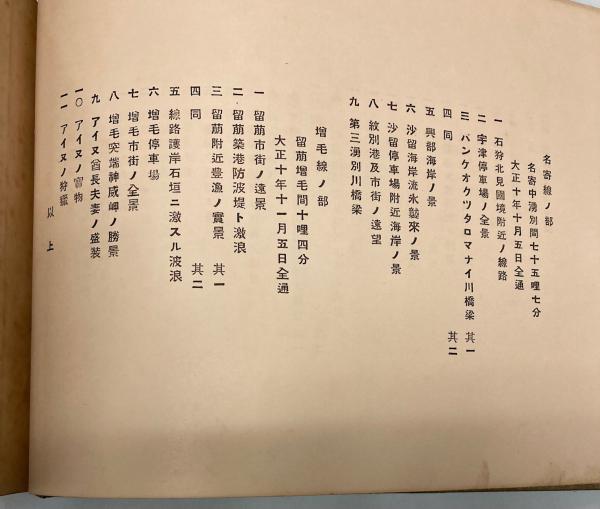 名寄線ノ部
名寄中湧別間七十五哩七分
大正十年十月五日全通
一 石狩北見國境附近ノ線路
二 宇津停車場ノ全景
三 パンケオクツタロマナイ川橋梁 其一
四 同 其二
五 興部海岸ノ景
六 沙留海岸流氷襲來ノ景
七 沙留停車場附近海岸ノ景
八 紋別港及市街ノ遠望
九 第三湧別川橋梁
增毛線ノ部
留萠增毛間十哩四分
大正十年十一月五日全通
一 留萠市街ノ遠景
二 留萠築港防波堤ト激浪
三 留萠附近豊漁ノ實景 其一
四 同 其二
五 線路護岸石垣ニ激スル波浪
六 增毛停車場
七 增毛市街ノ全景
八 增毛突端神威岬ノ勝景
九 アイヌ酋長夫妻ノ盛裝
一〇 アイヌノ寶物
一一 アイヌノ狩獵
以上